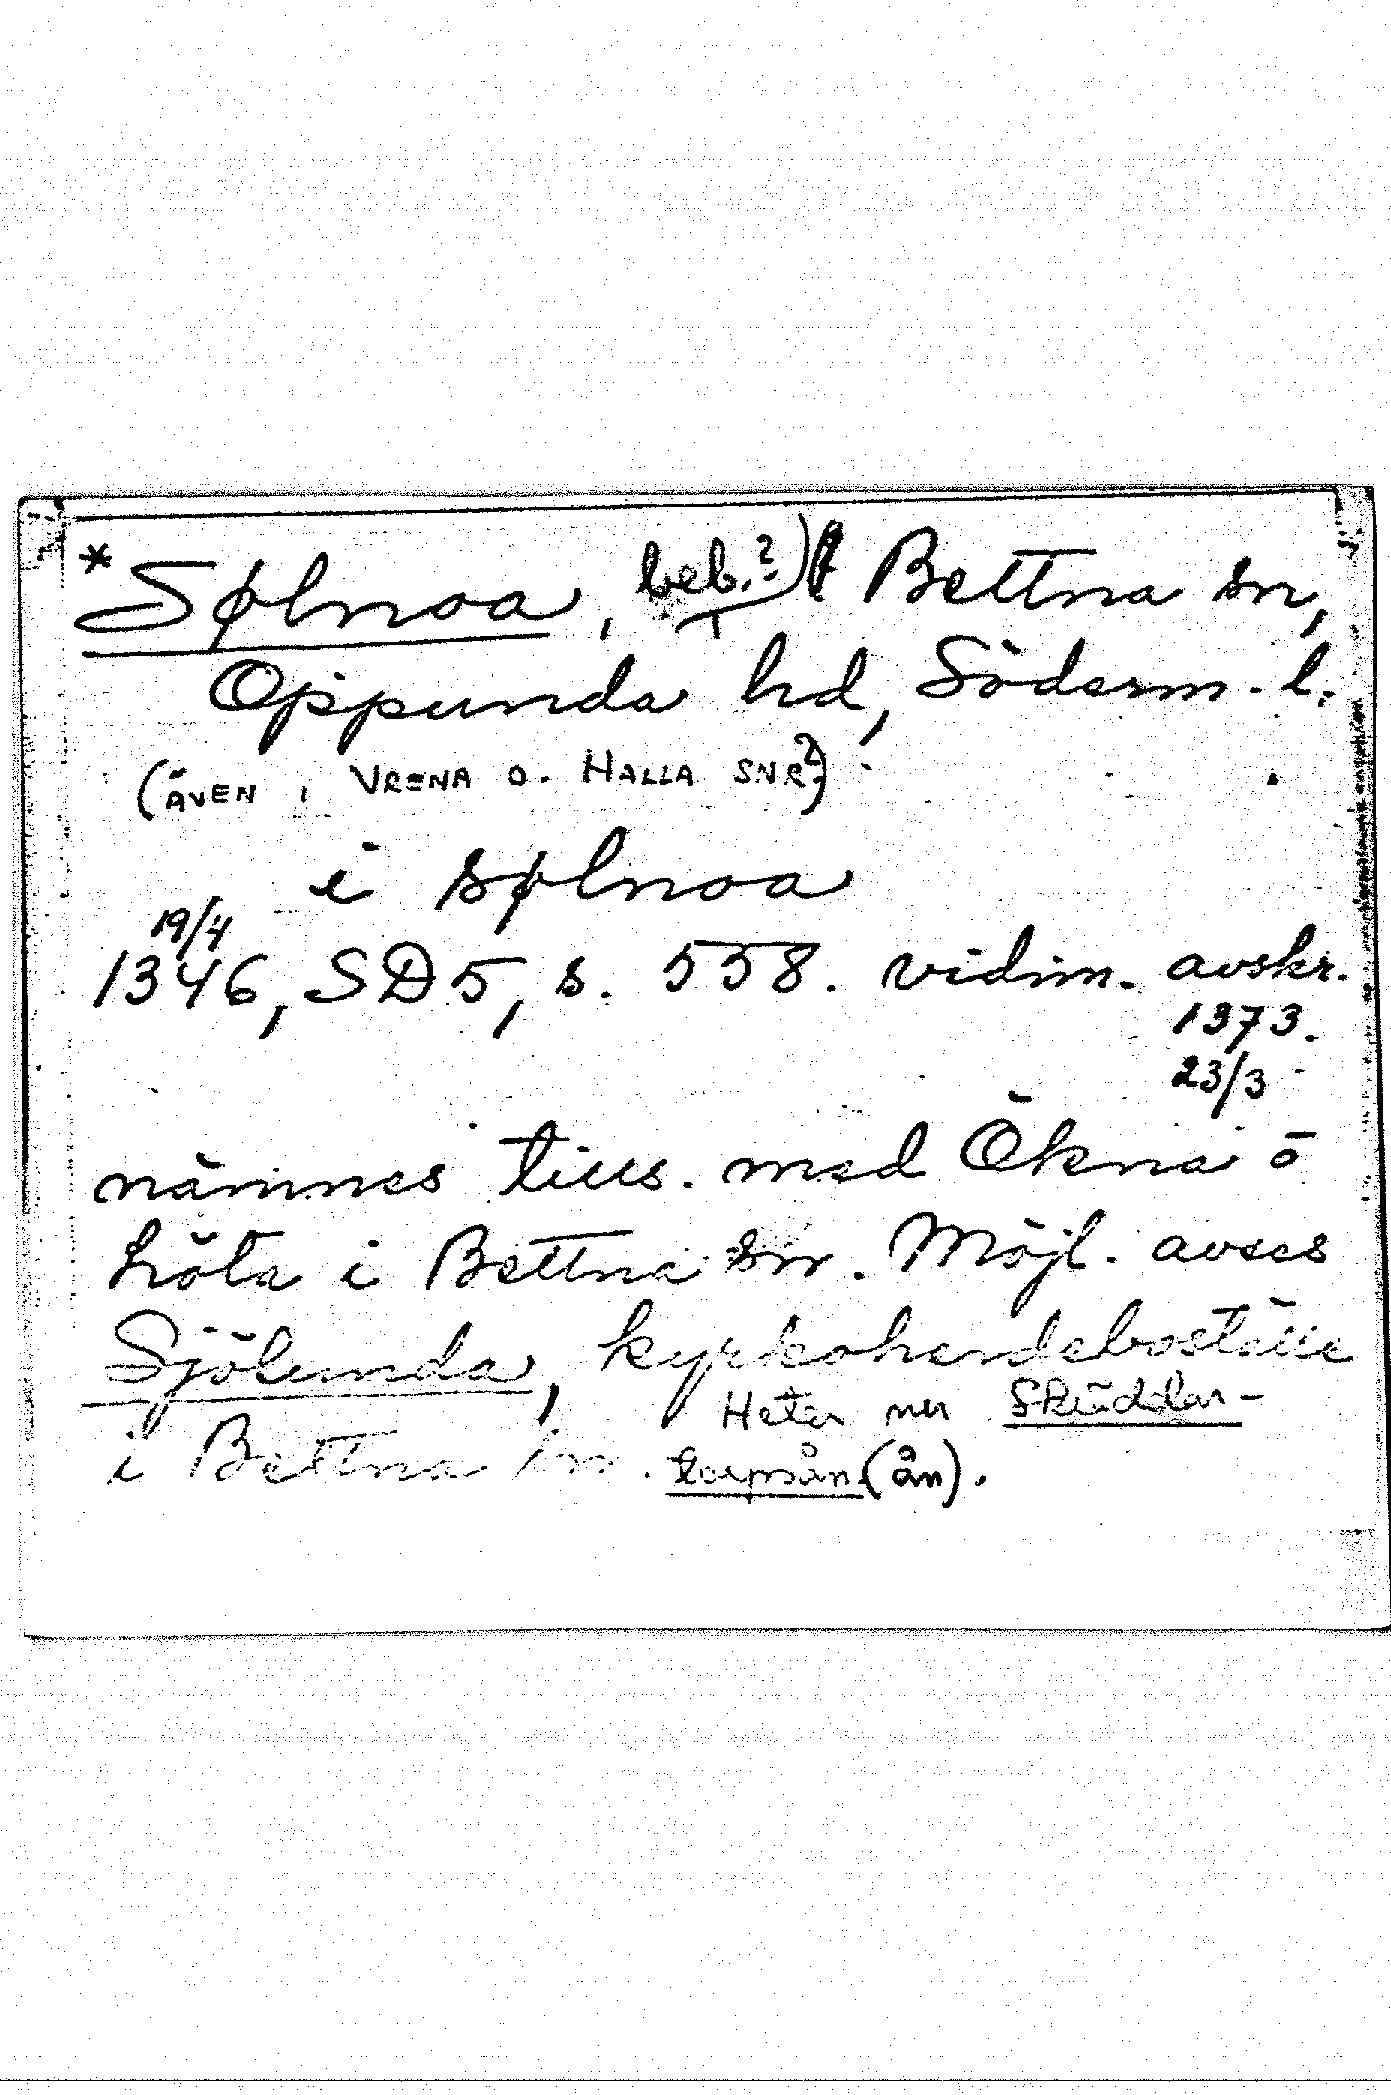 *Sølnoa, beb.?) Bettna sn,
Oppunda hd, Söderm. l.
(ÄVEN I VRENA O. HALLA SNR?)
i sølnoa
19/4
1346, SD 5, s. 558. vidim. avskr.
1373.
23/3
nämnes tills. med Ökna o
höta i Bettna sn. Möjl. avses
Sjölunda, kyrkoherdeboställe
i Bettna sn. Heter nu
torpsån (ån).